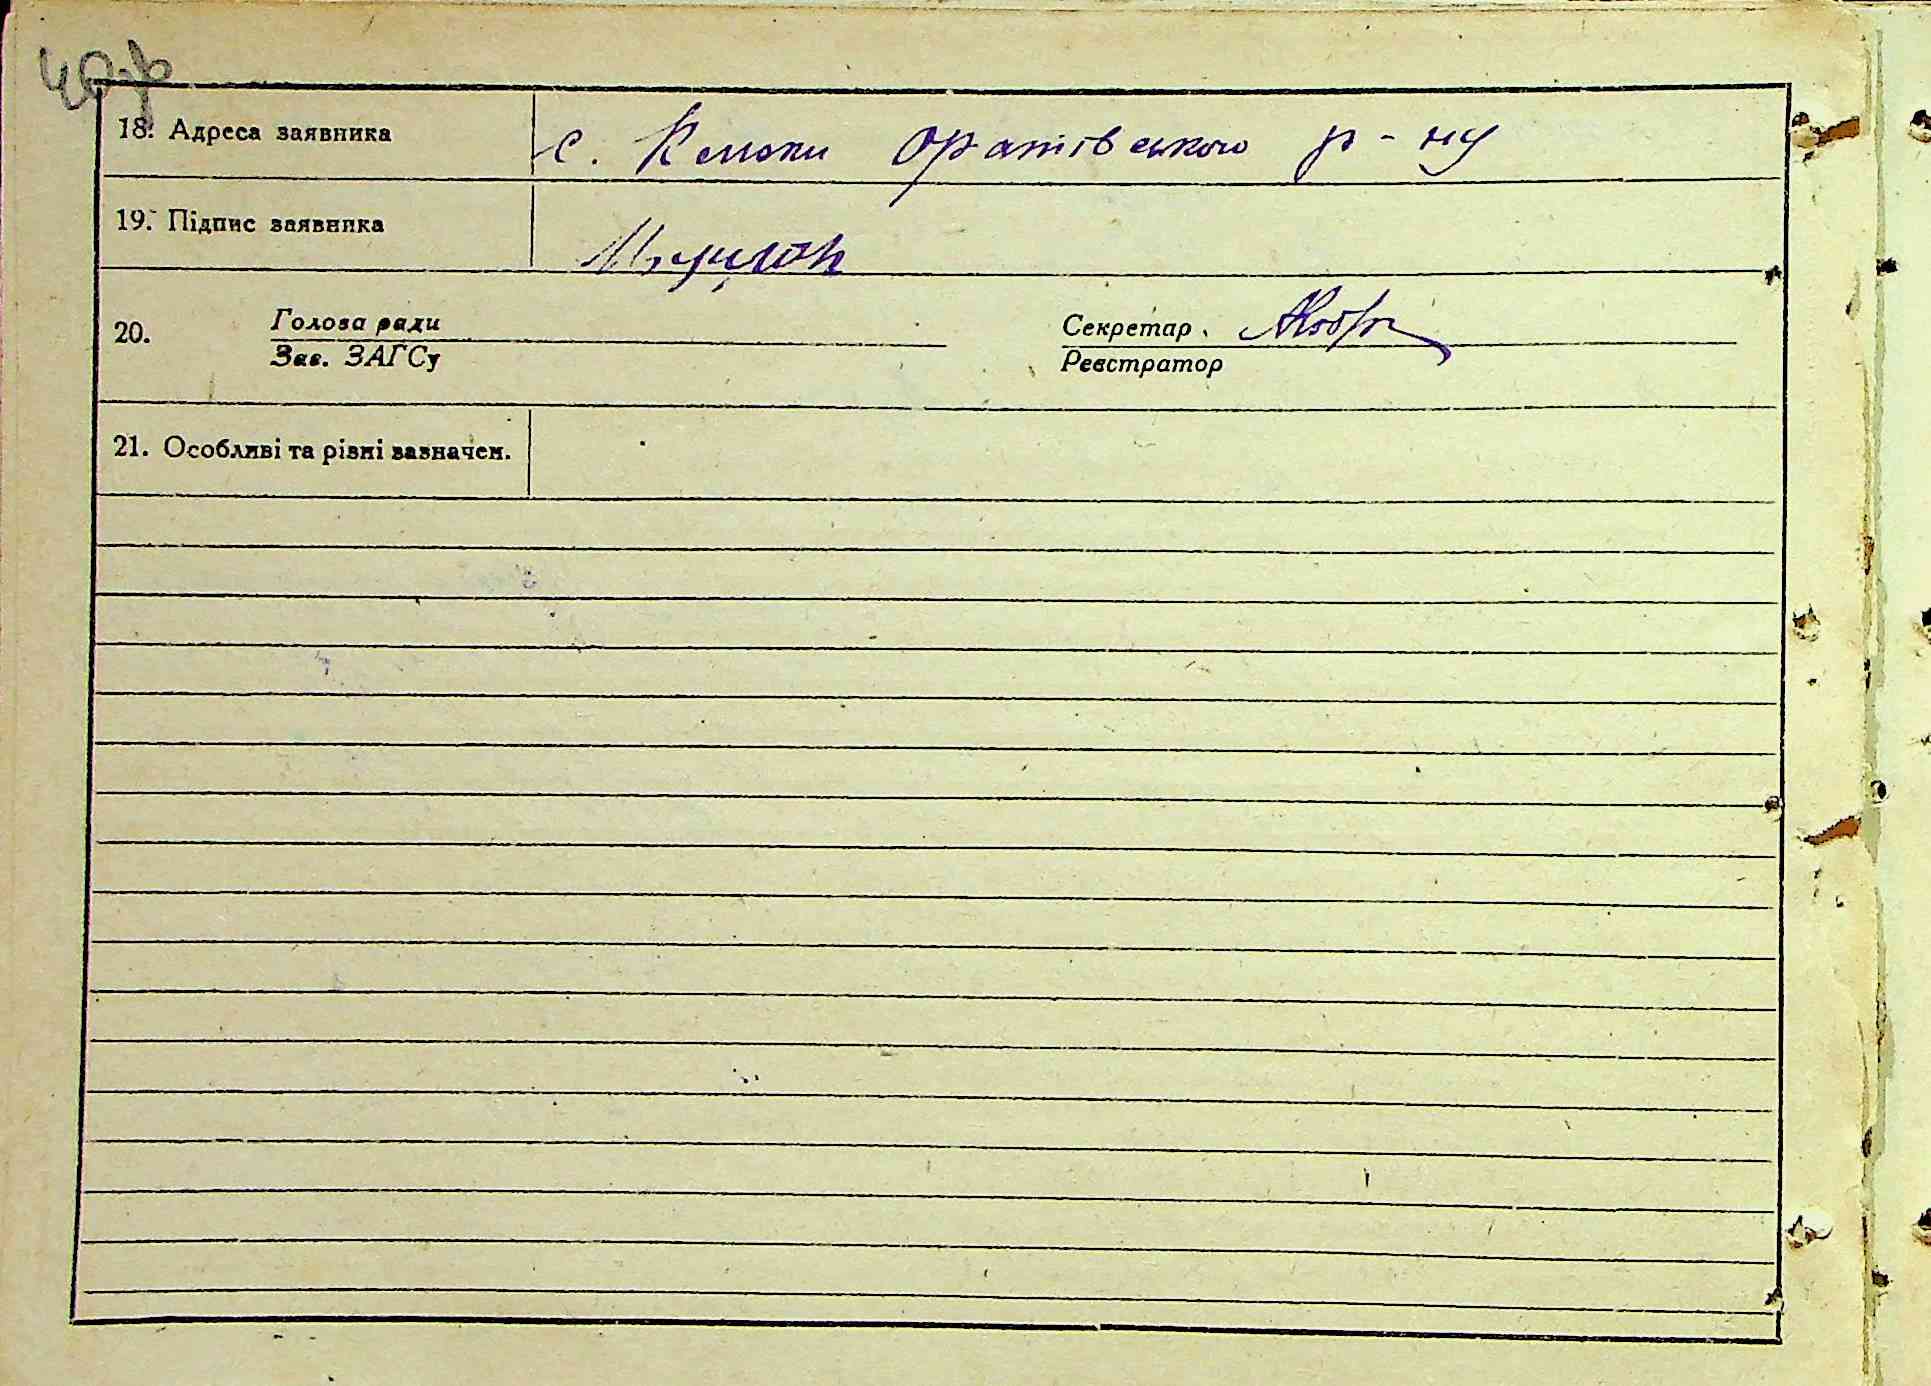 40зв
18. Адреса заявника с. Клюки Оратівського р-ну
19. Підпис заявника
20. Голова ради Секретар
Зав. ЗАГСу Реєстратор
21. Особливі та різні зазначен.